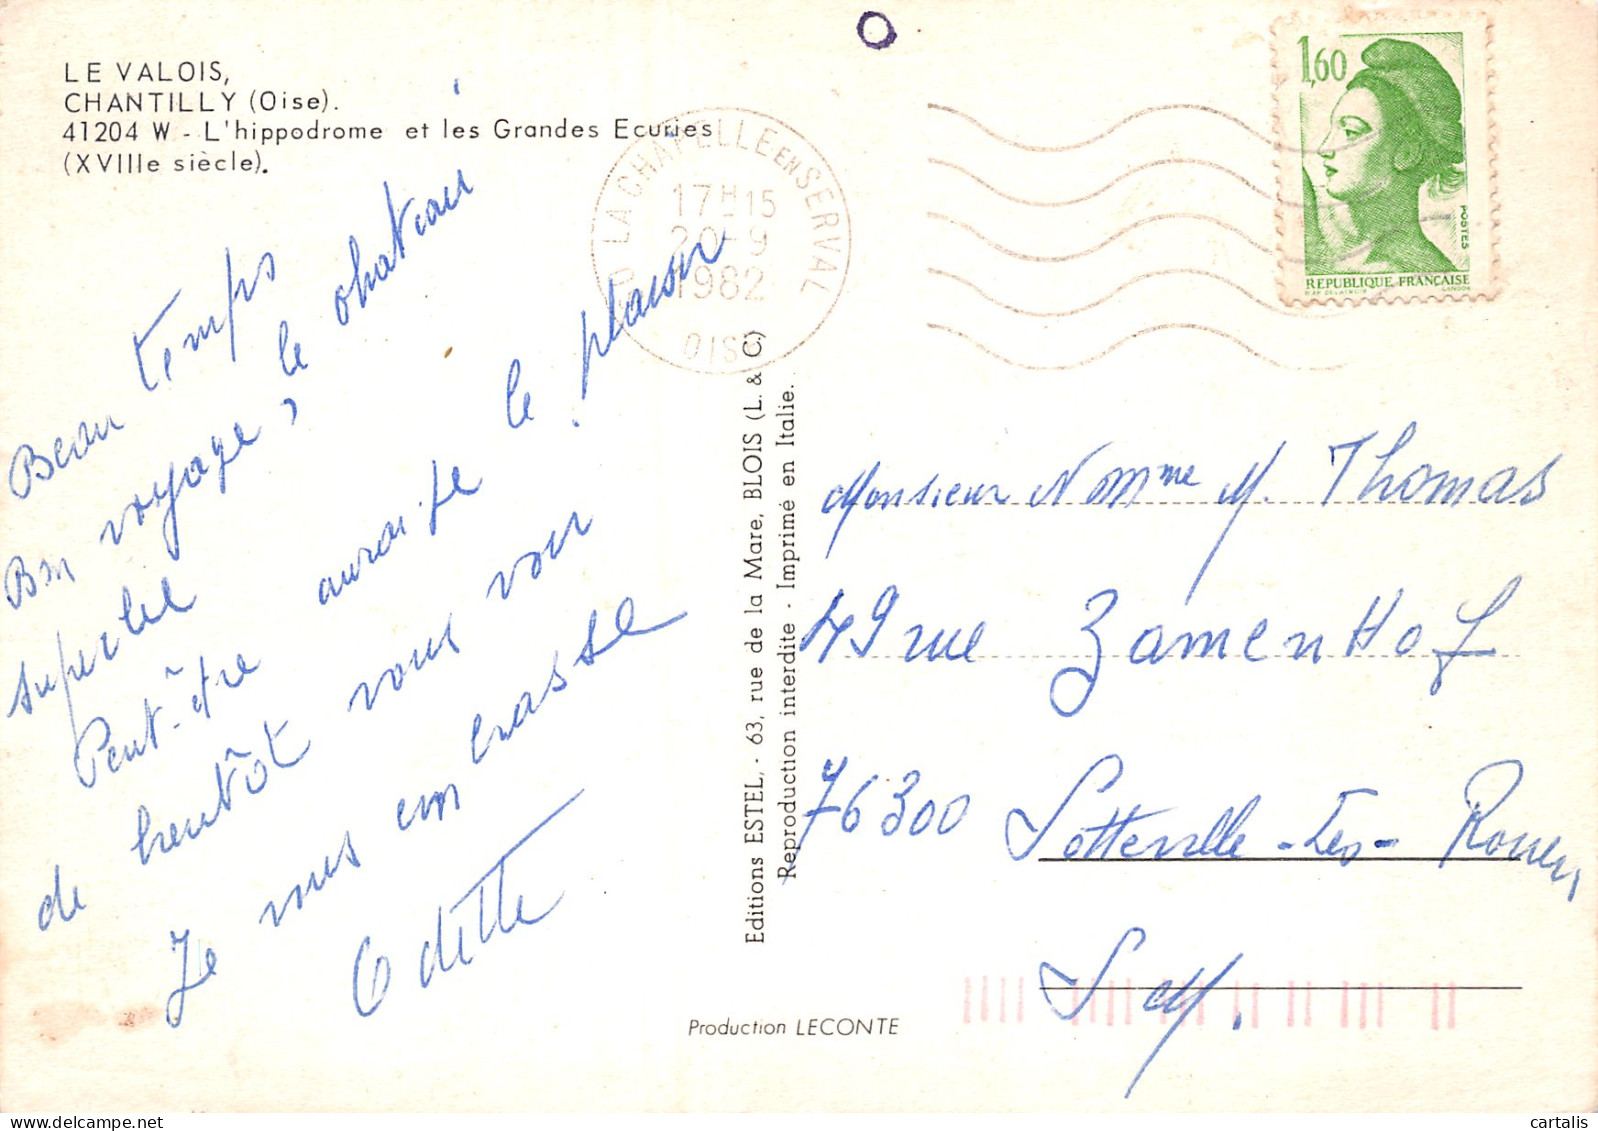 LE VALOIS,
CHANTILLY (Oise).
41204 W - L'hippodrome et les Grandes Ecuries
(XVIIIe siècle).
Beau temps
Bon voyage, le chateau
superbe
Peut-être aurai-te le plaisir
de bientôt vous voir
Je vous embrasse
Odette
LA CHAPELLE EN SERVAL
17H15
20-9
1982
OISE
1,60
POSTES
REPUBLIQUE FRANÇAISE
Editions ESTEL, - 63, rue de la Mare, BLOIS (L. & C.)
Reproduction interdite - Imprimé en Italie.
Monsieur N Mme M. Thomas
49 rue ZamenHof
76300 Sotteville-Les-Rouen
S M.
Production LECONTE
cartalis